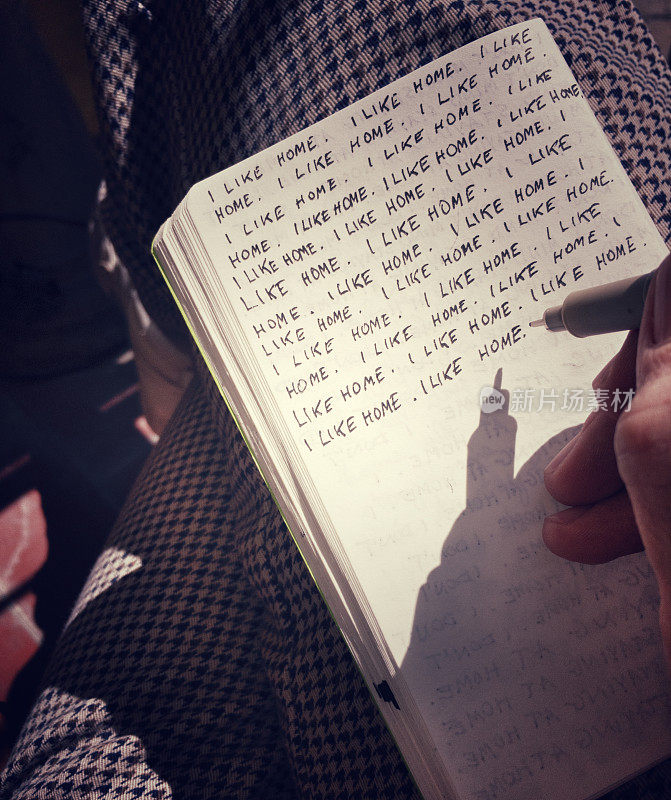 I LIKE HOME. I LIKE HOME. I LIKE
HOME. I LIKE HOME. I LIKE HOME.
I LIKE HOME. I LIKE HOME. I LIKE
HOME. I LIKE HOME. I LIKE HOME. I LIKE HOME.
I LIKE HOME. I LIKE HOME. I LIKE HOME. I
LIKE HOME. I LIKE HOME. I LIKE
HOME. I LIKE HOME. I LIKE HOME. I
LIKE HOME. I LIKE HOME. I LIKE HOME.
I LIKE HOME. I LIKE HOME. I LIKE
HOME. I LIKE HOME. I LIKE HOME. I
LIKE HOME. I LIKE HOME. I LIKE HOME.
I LIKE HOME. I LIKE HOME.
New 新片场素材